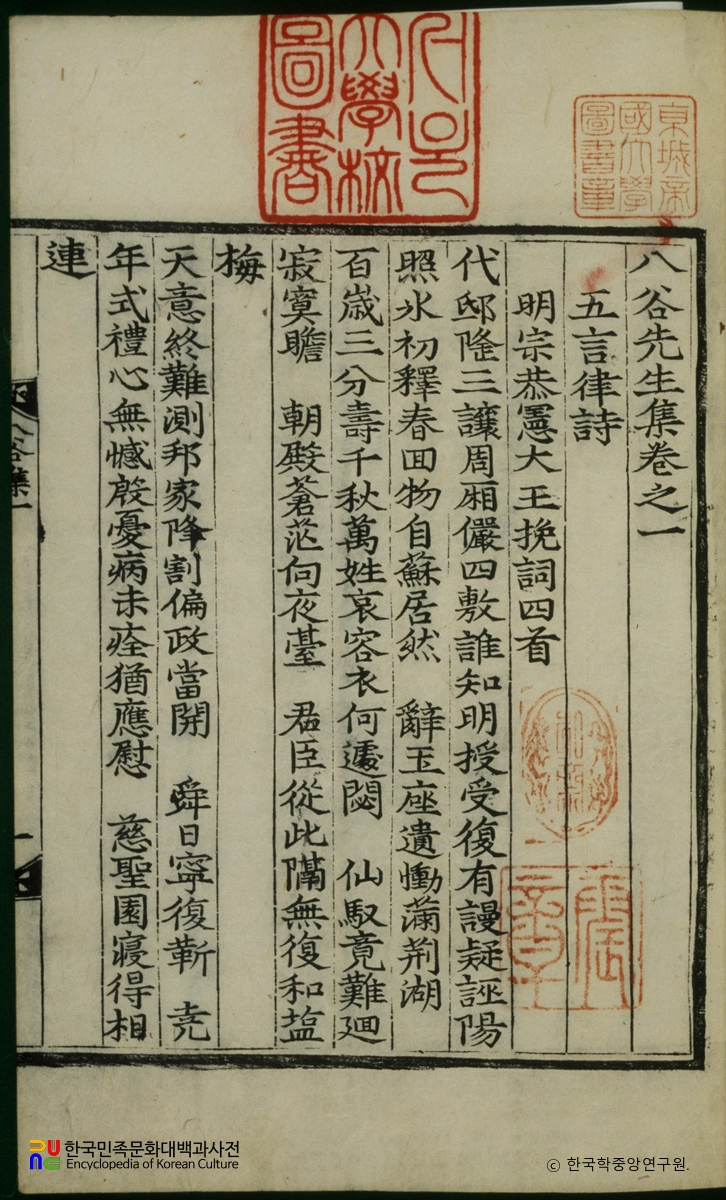 八谷先生集卷之一
五言律詩
明宗恭憲大王挽詞四首
代邸隆三讓周廂儼四敷誰知明授受復有謾疑誣陽
照氷初釋春回物自蘇居然 辭玉座遺慟滿荆湖
百歲三分壽千秋萬姓哀容衣何遽閟 仙馭竟難廻
寂寞瞻 朝殿蒼茫向夜臺 君臣從此隔無復和塩
梅
天意終難測邦家降割偏政當開 舜日寧復靳 堯
年式禮心無憾殷憂病未痊猶應慰 慈聖園寢得相
連
八谷集一
一
大學校
圖書
東城帝
國大學
圖書章
한국민족문화대백과사전
Encyclopedia of Korean Culture
ⓒ 한국학중앙연구원.